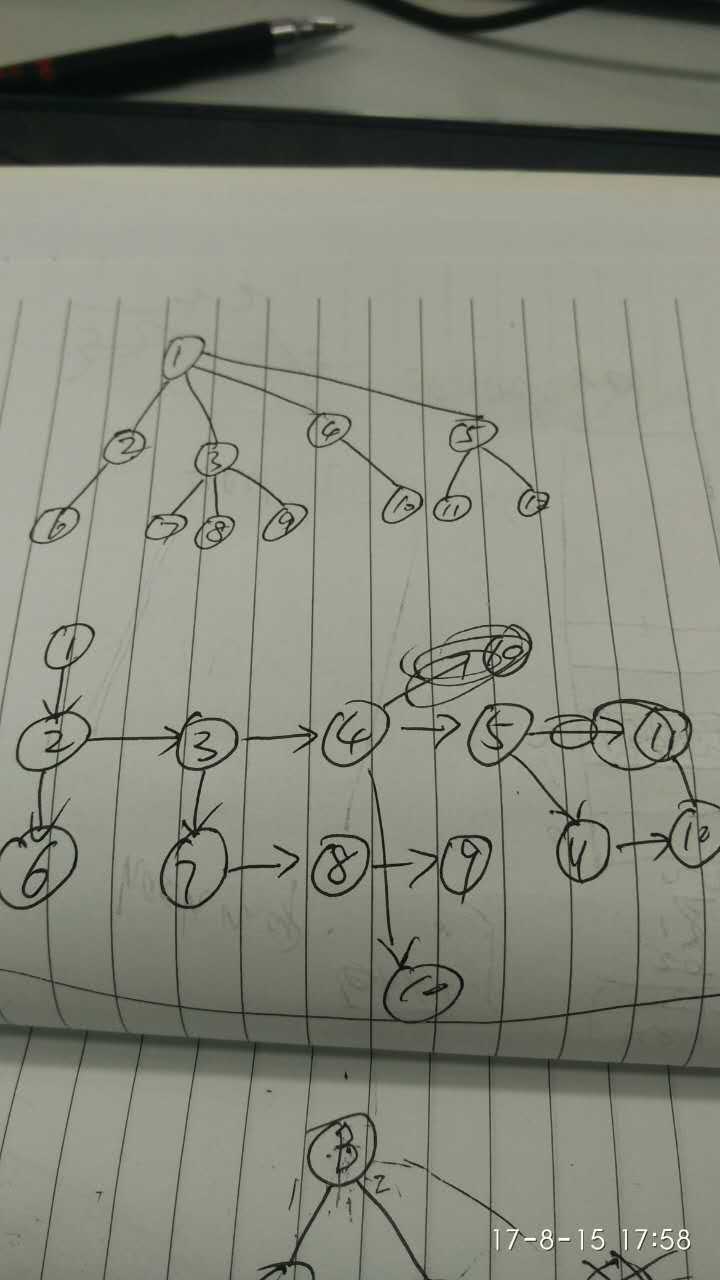 1
2 3 4 5
6 7 8 9 10 11 12
1
2 3 4 5 11
6 7 8 9 11 12
10
B
1 1 2
17-8-15 17:58